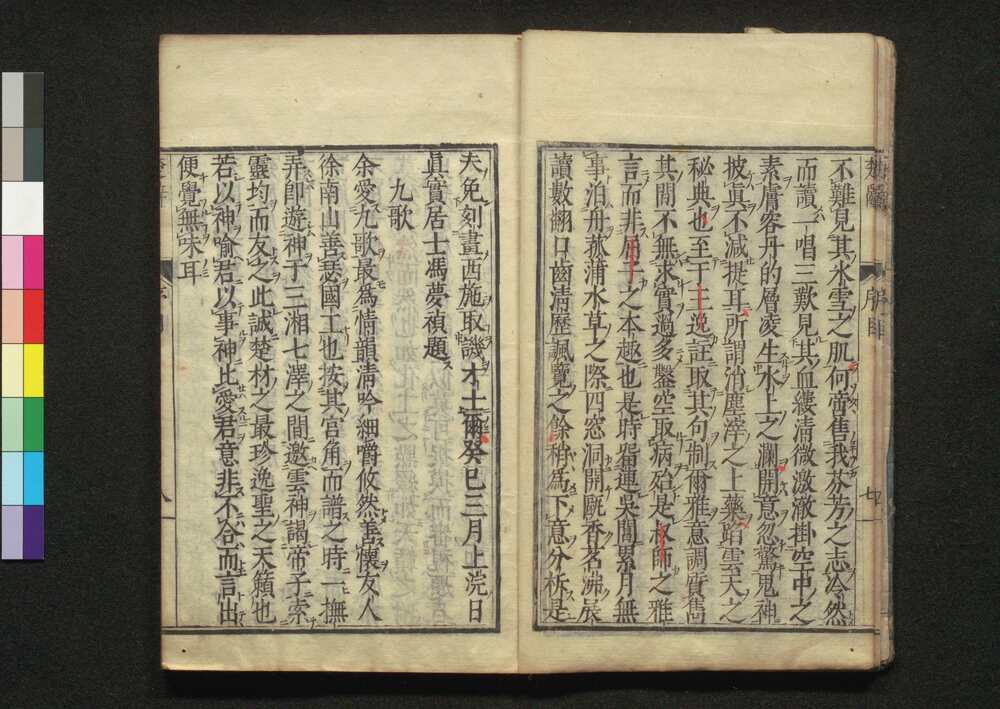 不難見其氷雪之肌何帝售我芬芳之志冷然
而讀一唱三歎見其血縷清微激澈掛空中之
素膚容丹的層凌生水上之瀾開意忽驚鬼神
披真不減提耳所謂治塵滓之上藥蹈雲天之
秘典也至于王逸註取其句制爾雅意調質雋
其間不無求實過多鑿空取病殆是叔師之雅
言而非屈子之本趣也是時籕運吳閶累月無
事泊舟菰蒲水草之際四窓洞開厭香茗沸展
讀數翻口齒清歷諷覽之餘稍為下意分柝是
夫免刻畫西施取譏才士爾癸巳三月上浣日
真實居士馮夢禎題
九歌
余愛九歌最為情韻清吟細嚼攸然善懷友人
徐南山善瑟國工也按其宮角而譜之時一撫
弄即遊神于三湘七澤之間邀雲神謁帝子索
靈均而友之此誠楚材之最珍逸聖之天籟也
若以神喻君以事神比愛君意非不合而言出
便覺無味耳